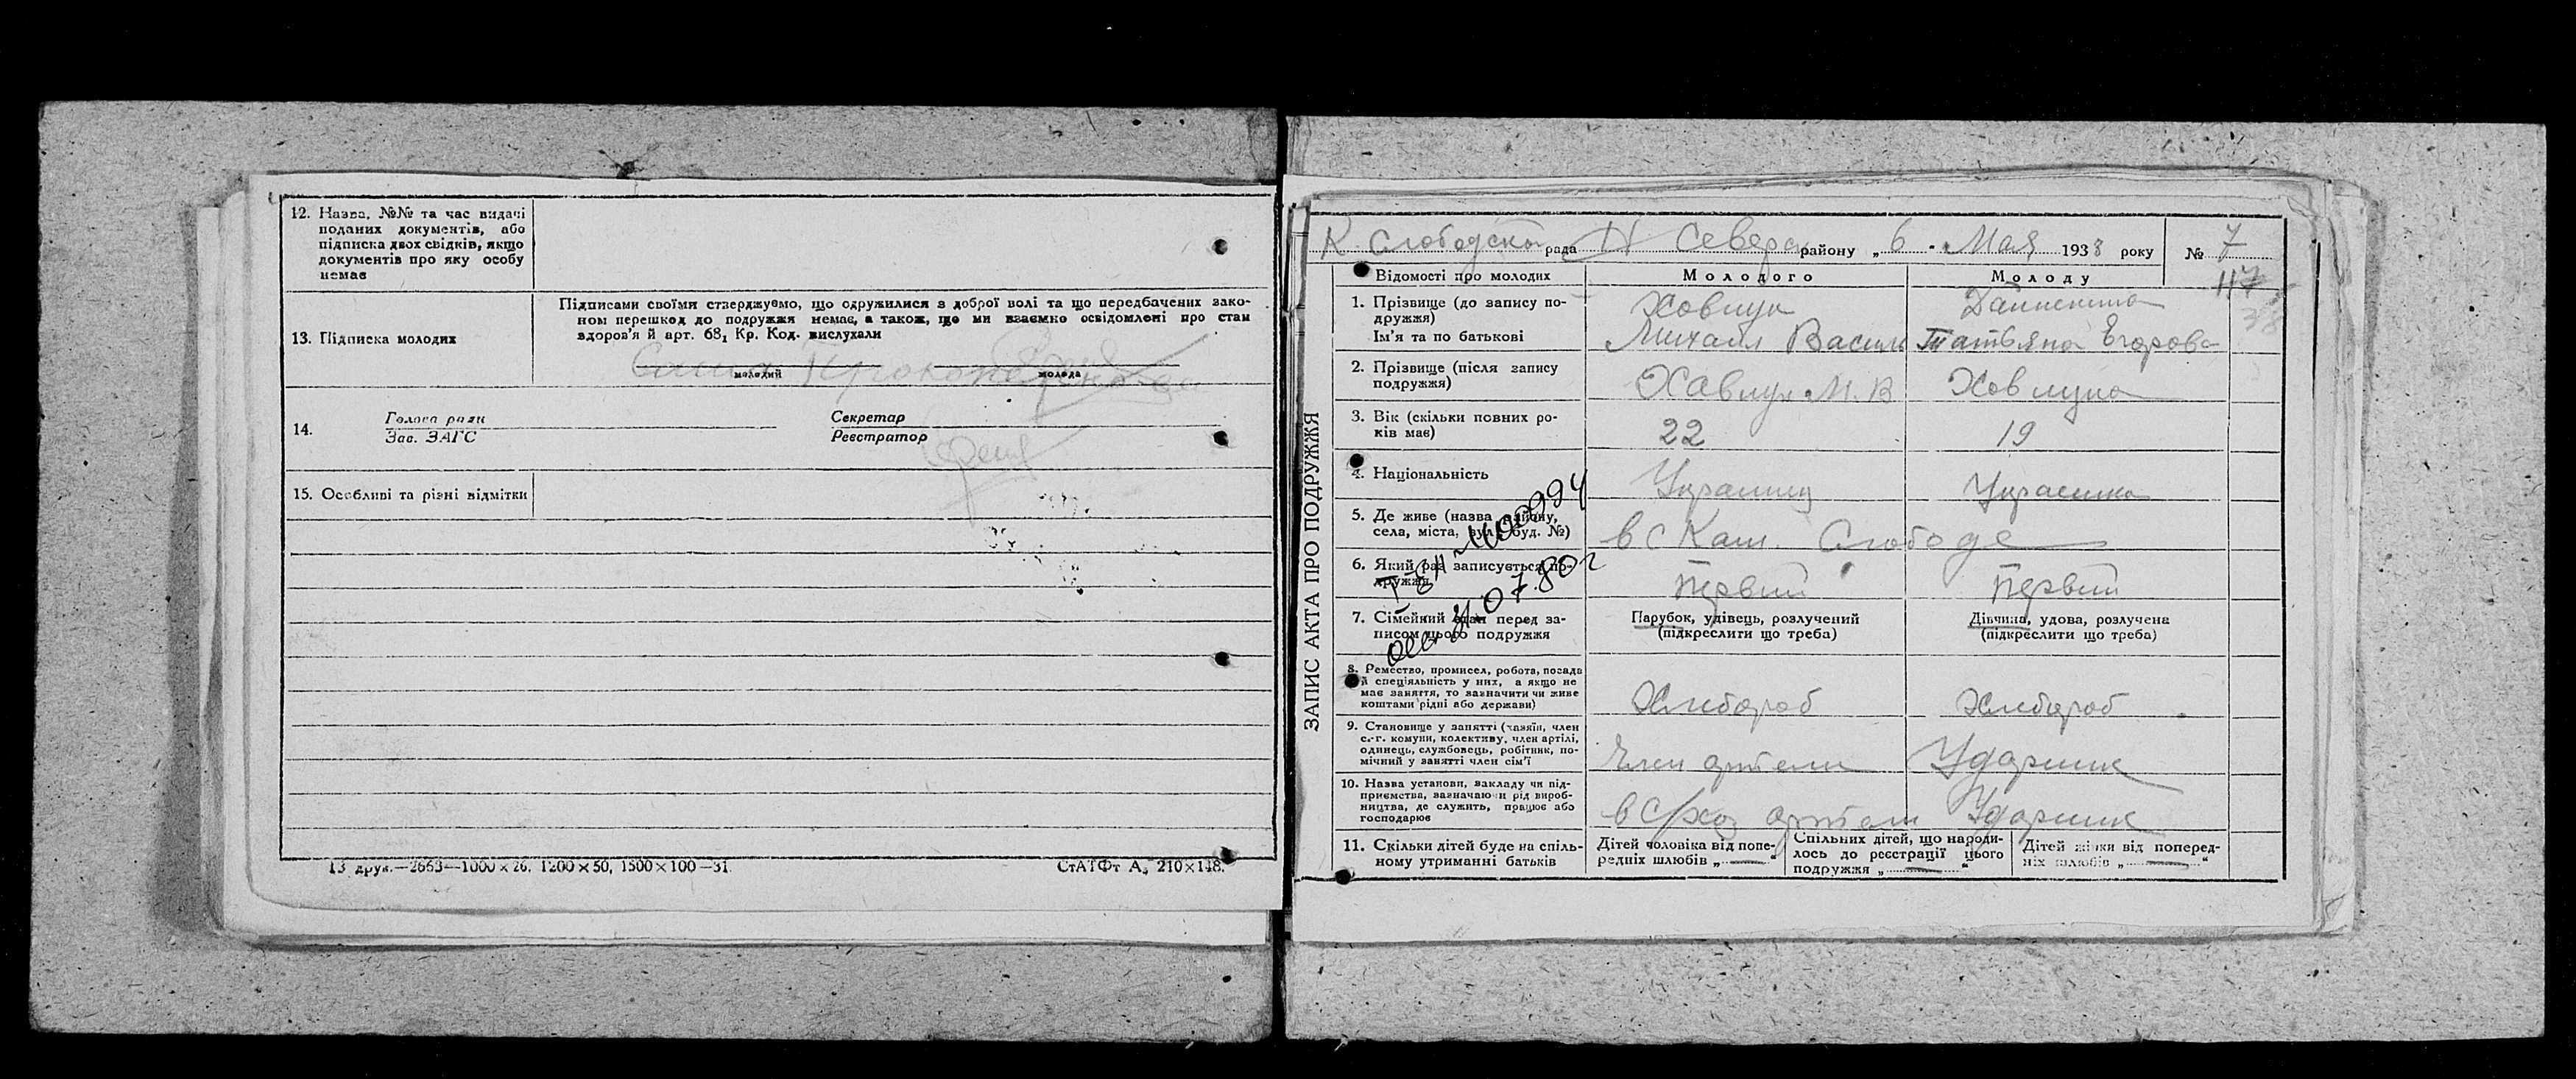 12. Назва, №№ та час видачі
поданих документів, або
підписка двох свідків, якщо
документів про яку особу
немає
13. Підписка молодих
Підписами своїми стверджуємо, що одружилися з доброї волі та що передбачених зако-
ном перешкод до подружжя немає, а також, що ми взаємно освідомлені про стан
здоров'я й арт. 68, Кр. Код. вислухали
молодий
молода
14.
Голова ради
Зав. ЗАГС
Секретар
Реєстратор
15. Особливі та різні відмітки
13 друк.—2663—1000×26, 1200×50, 1500×100—31.
СтАТФт А5 210×148.
ЗАПИС АКТА ПРО ПОДРУЖЖЯ
К Слободской рада Н Северск району „ 6 " Мая 1938 року № 7
117
Відомості про молодих
Молодого
Молоду
1. Прізвище (до запису по-
дружжя)
Ім'я та по батькові
Михаил Васил
Татьяна Егорова
2. Прізвище (після запису
подружжя)
3. Вік (скільки повних ро-
ків має)
22
19
4. Національність
Украинец
Украинка
5. Де живе (назва району,
села, міста, вул., буд. №)
в с Кам. Слободе
6. Який раз записується по-
дружжя
Первый
Первый
7. Сімейний стан перед за-
писом цього подружжя
Парубок, удівець, розлучений
(підкреслити що треба)
Дівчина, удова, розлучена
(підкреслити що треба)
8. Ремество, промисел, робота, посада
й спеціяльність у них, а якщо не
має заняття, то зазначити чи живе
коштами рідні або держави)
Хлибороб
Хлибороб
9. Становище у занятті (хазяїн, член
с.-г. комуни, колективу, член артілі,
одинець, службовець, робітник, по-
мічний у занятті член сім'ї
Член артели
Ударник
10. Назва установи, закладу чи під-
приємства, зазначаючи рід вироб-
ництва, де служить, працює або
господарює
в с/хоз артели Ударник
11. Скільки дітей буде на спіль-
ному утриманні батьків
Дітей чоловіка від попе-
редніх шлюбів „ — "
Спільних дітей, що народи-
лось до реєстрації цього
подружжя „ — "
Дітей жінки від поперед-
ніх шлюбів „ — "